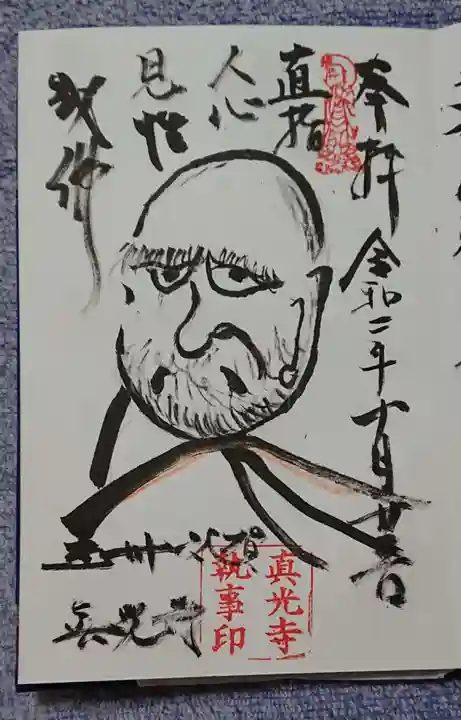 奉拝
令和二年十一月廿二日
直指
人心
見性
成佛
真光寺
真光寺
執事印